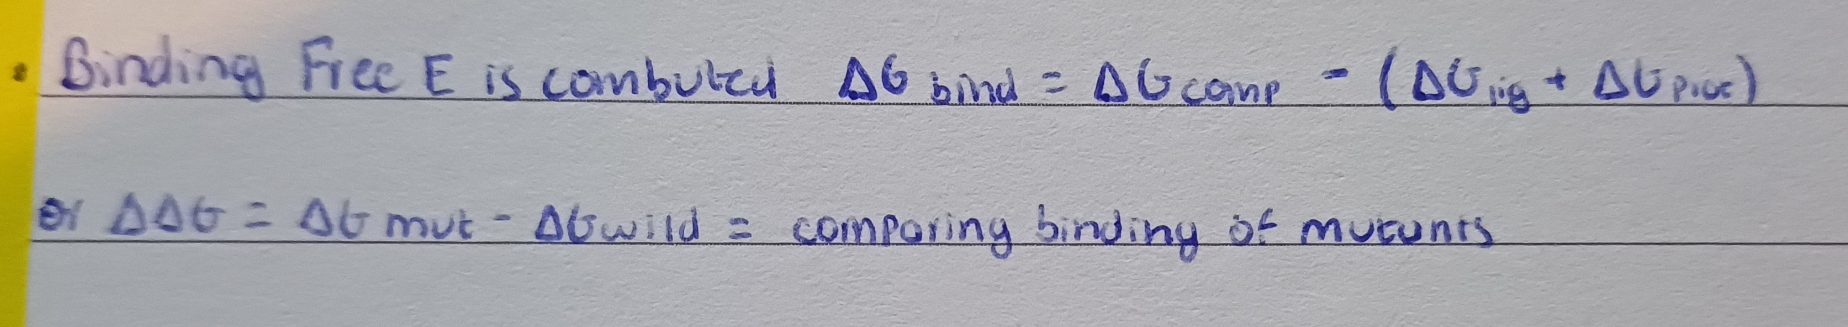 • Binding Free E is combuted ΔG bind = ΔG comp - (ΔG lig + ΔG prot)
or ΔΔG = ΔG mut - ΔG wild = comparing binding of mutants